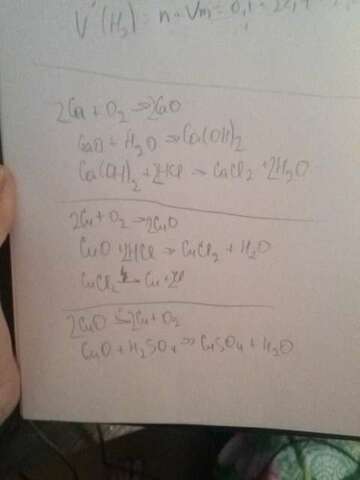 V(H₂) = n · Vm = 0,1 · 22,4 =
2Ca + O₂ → 2CaO
CaO + H₂O → Ca(OH)₂
Ca(OH)₂ + 2HCl → CaCl₂ + 2H₂O
2Cu + O₂ → 2CuO
CuO + 2HCl → CuCl₂ + H₂O
CuCl₂ → Cu + Cl
2CuO → 2Cu + O₂
CuO + H₂SO₄ → CuSO₄ + H₂O